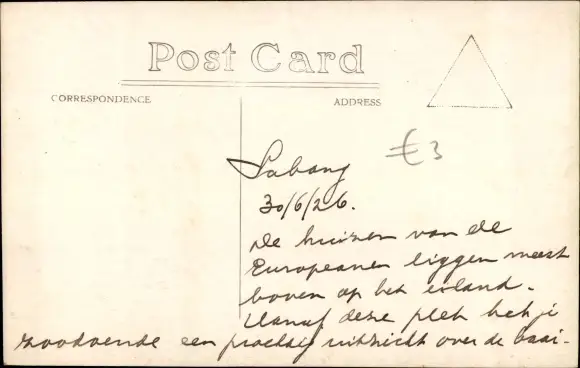 Post Card
CORRESPONDENCE
ADDRESS
€3
Sabang
30/6/26.
De huizen van de
Europeanen liggen meest
boven op het eiland.
Vanaf deze plek heb je
zoodoende een prachtig uitzicht over de baai.